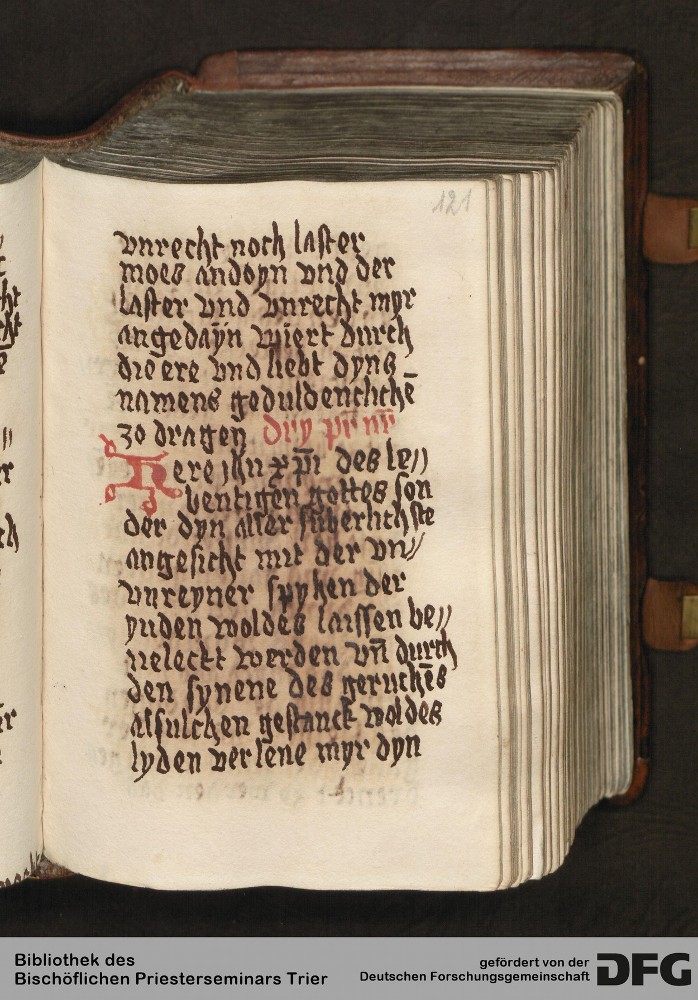 121
vnrecht noch laster
moes andoyn vnd der
laster vnd vnrecht myr
angedayn wiert durch
die ere vnd liebt dyns
namens geduldenclichē
zo dragen dry pr̄ nr̄
Here ihū xp̄i des le〃
bentigen gottes son
der dyn aller suberlichste
angesicht mit der vn〃
vnreyner spyhen der
yuden woldes laissen be〃
vleckt werden vn̄ durch
den synene des geruchēs
alsulchen gestanck woldes
lyden verlene myr dyn
Bibliothek des
Bischöflichen Priesterseminars Trier
gefördert von der
Deutschen Forschungsgemeinschaft
DFG